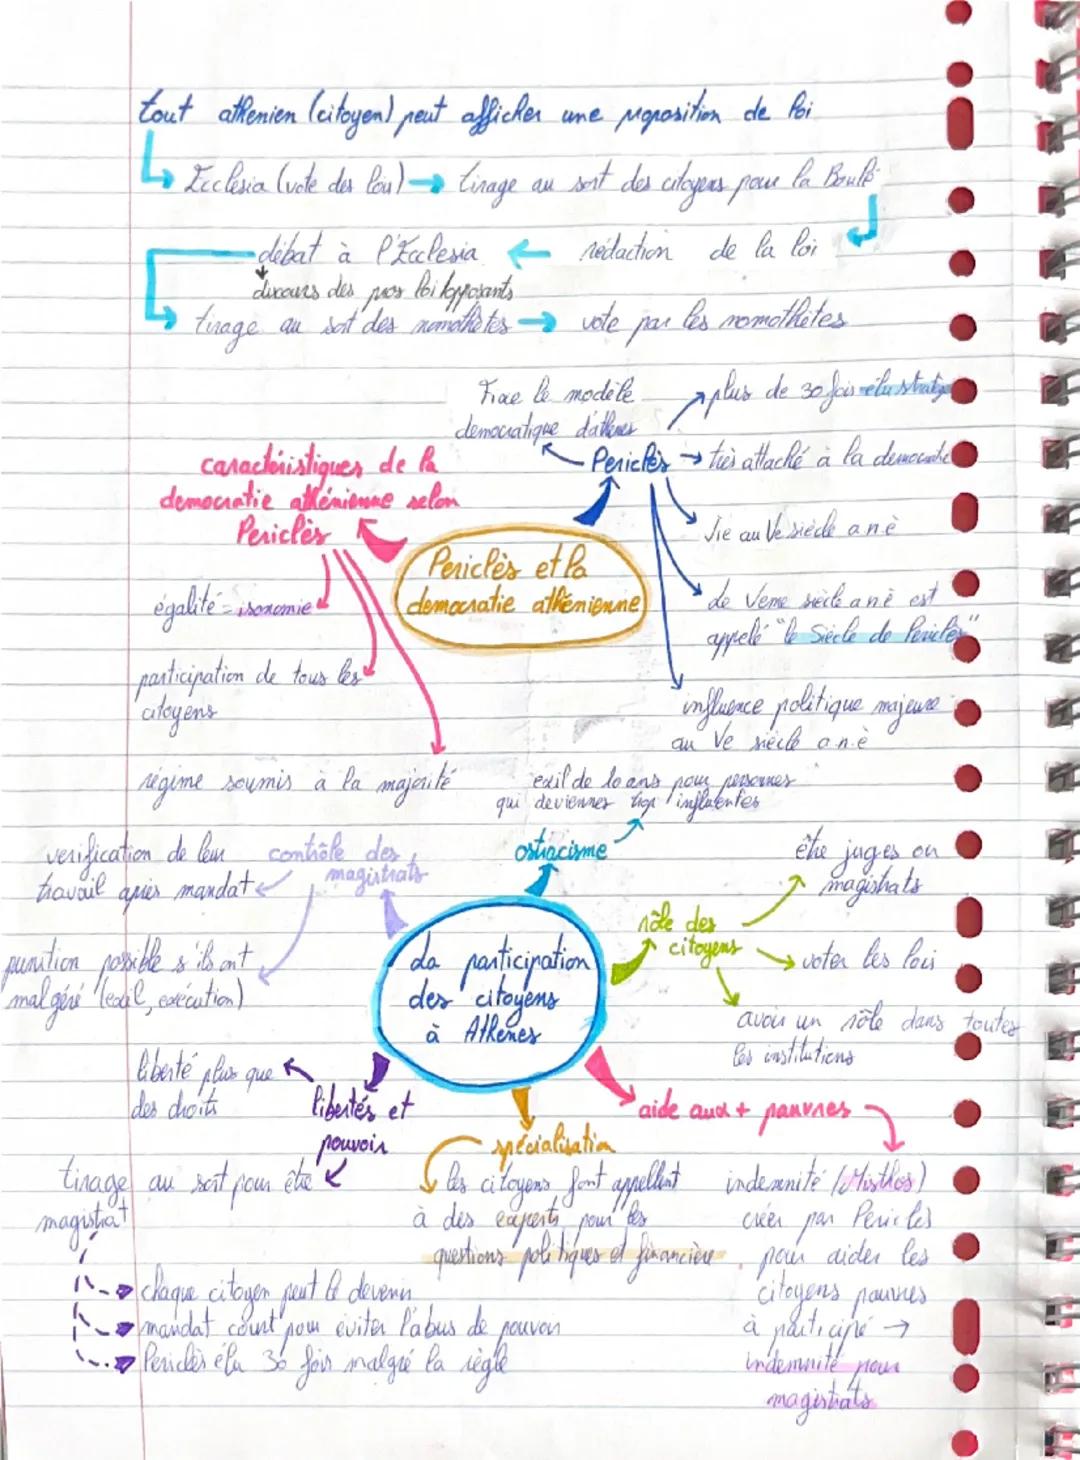 tout athenien (citoyen) peut afficher une proposition de loi
Ecclesia (vote des lois) → tirage au sort des citoyens pour la Boulè
débat à l'Ecclesia ← rédaction de la loi
discours des pros loi/opposants
tirage au sort des nomothètes → vote par les nomothètes
Fixe le modèle
democratique d'athenes
plus de 30 fois élu stratège
Periclès → très attaché à la democratie
Vie au Ve siècle a.n.è
le Veme siècle a.n.è est
appelé "le Siècle de Periclès"
influence politique majeure
au Ve siècle a.n.è
caractéristiques de la
democratie athénienne selon
Periclès
Periclès et la
democratie athénienne
égalité = isonomie
participation de tous les
citoyens
régime soumis à la majorité
exil de 10 ans pour personnes
qui deviennes trop influentes
ostracisme
verification de leur
travail après mandat
contrôle des
magistrats
punition possible s'ils ont
mal géré (exil, exécution)
La participation
des citoyens
à Athènes
rôle des
citoyens
être juges ou
magistrats
voter les lois
avoir un rôle dans toutes
les institutions
liberté plus que
des droits
libertés et
pouvoir
tirage au sort pour être
magistrat
chaque citoyen peut le devenir
mandat court pour éviter l'abus de pouvoir
Periclès élu 30 fois malgré la règle
spécialisation
les citoyens font appellent
à des experts pour les
questions politiques et financière
aide aux + pauvres
indemnité (Misthos)
créer par Periclès
pour aider les
citoyens pauvres
à participé →
indemnité pour
magistrats